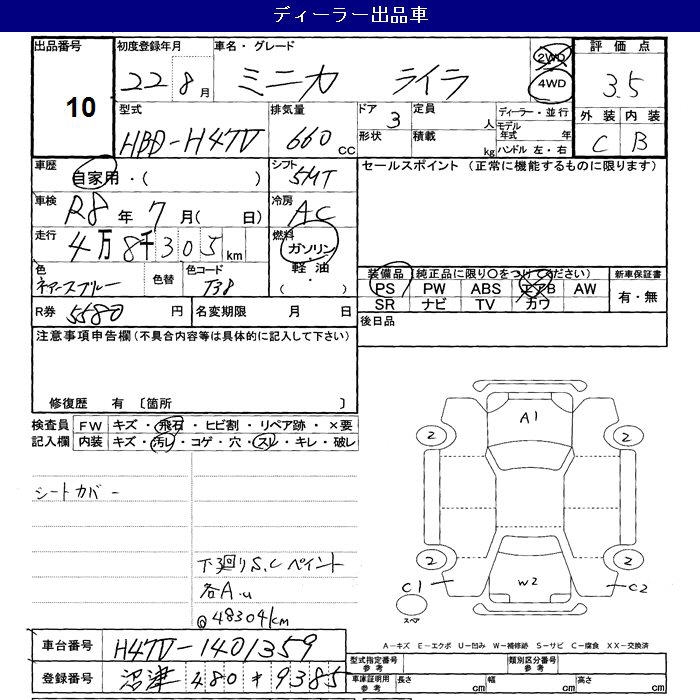 ディーラー出品車
出品番号 初度登録年月 車名・グレード 2WD 評価点
10 22 8月 ミニカ ライラ 4WD 3.5
型式 排気量 ドア 定員 ディーラー・並行 外装 内装
HBD-H47V 660 CC 3 人 モデル年式 年 C B
形状 積載 kg ハンドル 左・右
車歴 自家用・( ) シフト 5MT セールスポイント (正常に機能するものに限ります)
車検 R8年 7月( 日) 冷房 AC
走行 4万8千305km 燃料 ガソリン
軽油
( )
色 色替 色コード T38 装備品 (純正品に限り○をつけてください) 新車保証書
PS PW ABS エアB AW 有・無
SR ナビ TV カワ
R券 5580円 名変期限 月 日 後日品
注意事項申告欄(不具合内容等は具体的に記入して下さい)
修復歴 有 〔箇所 〕
検査員 FW キズ・飛石・ヒビ割・リペア跡・×要
記入欄 内装 キズ・汚レ・コゲ・穴・スレ・キレ・破レ
シートカバー
下廻りS.Cペイント
各A.u
@48304km
A1
2 2
2 2
C1 W2 C2
スペア
A-キズ E-エクボ U-凹み W-補修跡 S-サビ C-腐食 XX-交換済
車台番号 H47V-1401359 型式指定番号 参考 類別区分番号 参考
登録番号 沼津 480 * 9385 車庫証明用 参考 長さ cm 幅 cm 高さ cm